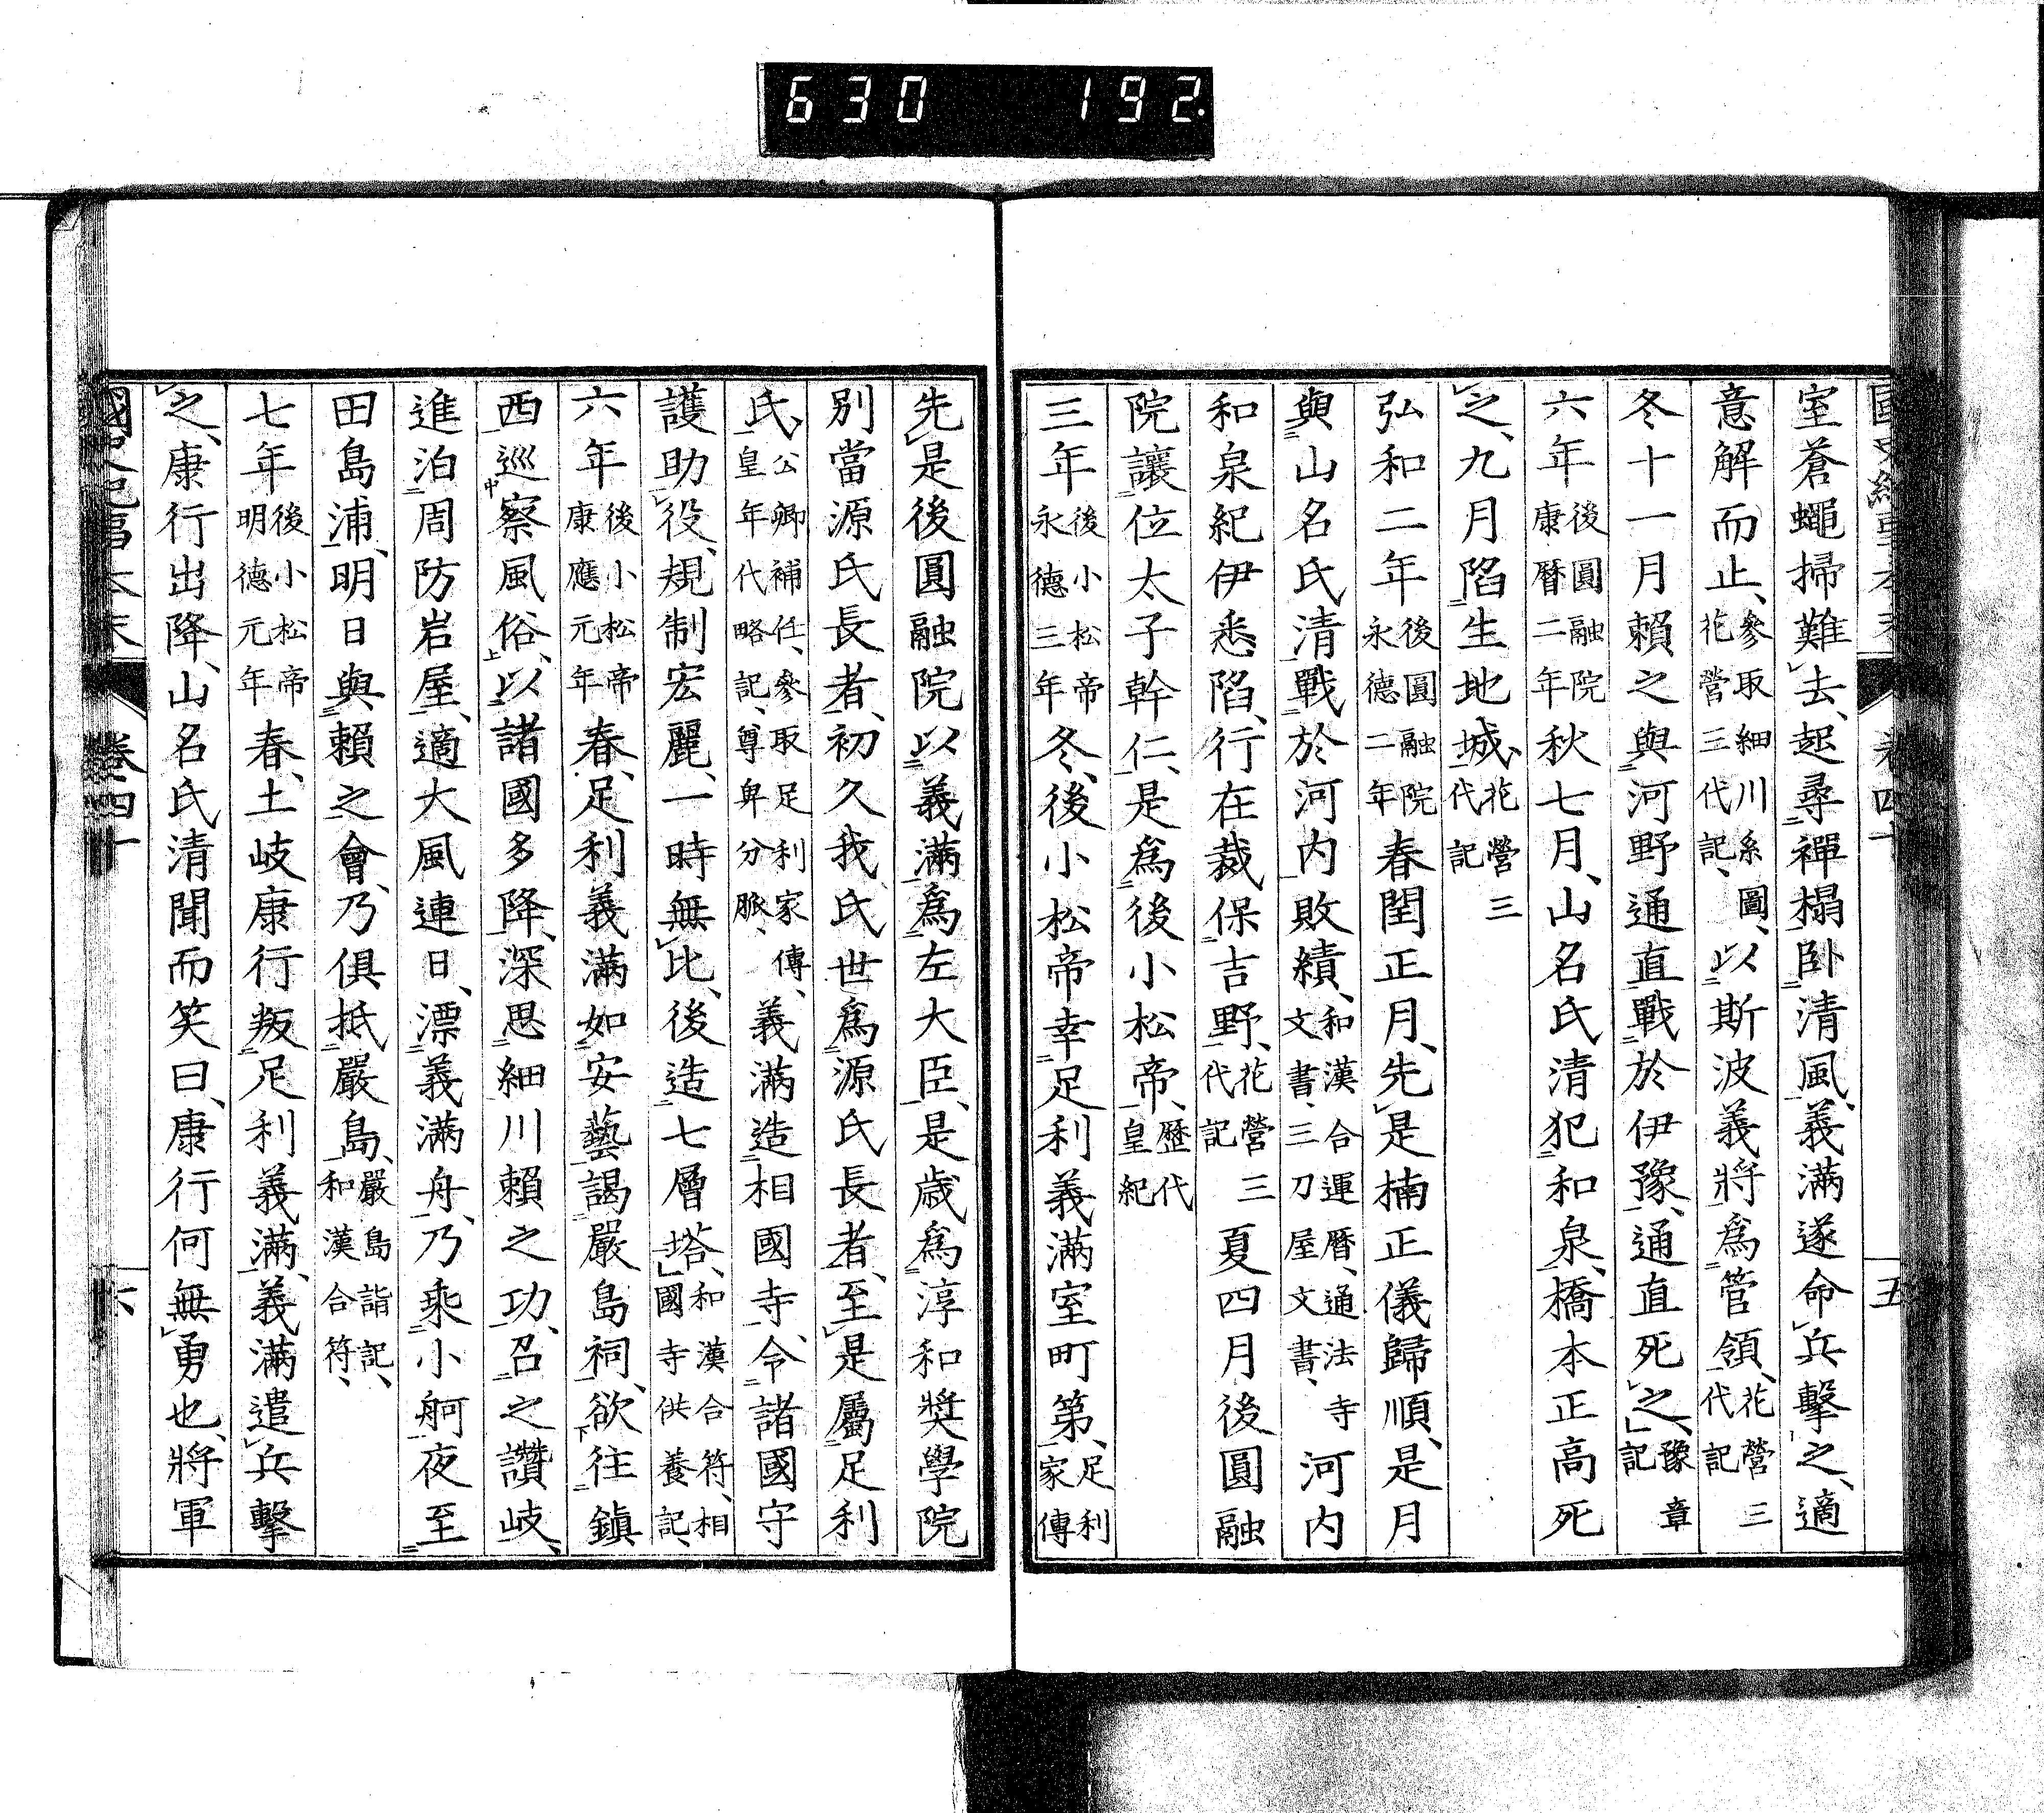 630 192
室蒼蠅掃難去、起尋禪榻臥清風、義滿遂命兵擊之、適
意解而止、參取細川系圖、花營三代記、以斯波義將爲管領、花營三代記
冬十一月賴之與河野通直戰於伊豫、通直死之、豫章記
六年後圓融院康曆二年秋七月、山名氏淸犯和泉、橋本正高死
之、九月陷生地城、花營三代記
弘和二年後圓融院永德二年春閏正月、先是楠正儀歸順、是月
與山名氏清戰於河內敗績、和漢合運曆、通法寺文書、三刀屋文書、河內
和泉紀伊悉陷、行在裁保吉野、花營三代記夏四月後圓融
院讓位太子幹仁、是爲後小松帝、歷代皇紀
三年後小松帝永德三年冬、後小松帝幸足利義滿室町第、足利家傳
五
先是後圓融院以義滿爲左大臣、是歲爲淳和奬學院
別當源氏長者、初久我氏世爲源氏長者、至是屬足利
氏、公卿補任、參取足利家傳、皇年代略記、尊卑分脈、義滿造相國寺、令諸國守
護助役、規制宏麗、一時無比、後造七層塔、和漢合符、相國寺供養記、
六年後小松帝康應元年春、足利義滿如安藝謁嚴島祠、欲往鎭
西巡察風俗、以諸國多降、深思細川賴之功、召之讚岐、
進泊周防岩屋、適大風連日、漂義滿舟、乃乘小舸夜至
田島浦、明日與賴之會、乃俱抵嚴島、嚴島詣記、和漢合符、
七年後小松帝明德元年春、土岐康行叛足利義滿、義滿遣兵擊
之、康行出降、山名氏清聞而笑曰、康行何無勇也、將軍
卷四十 六